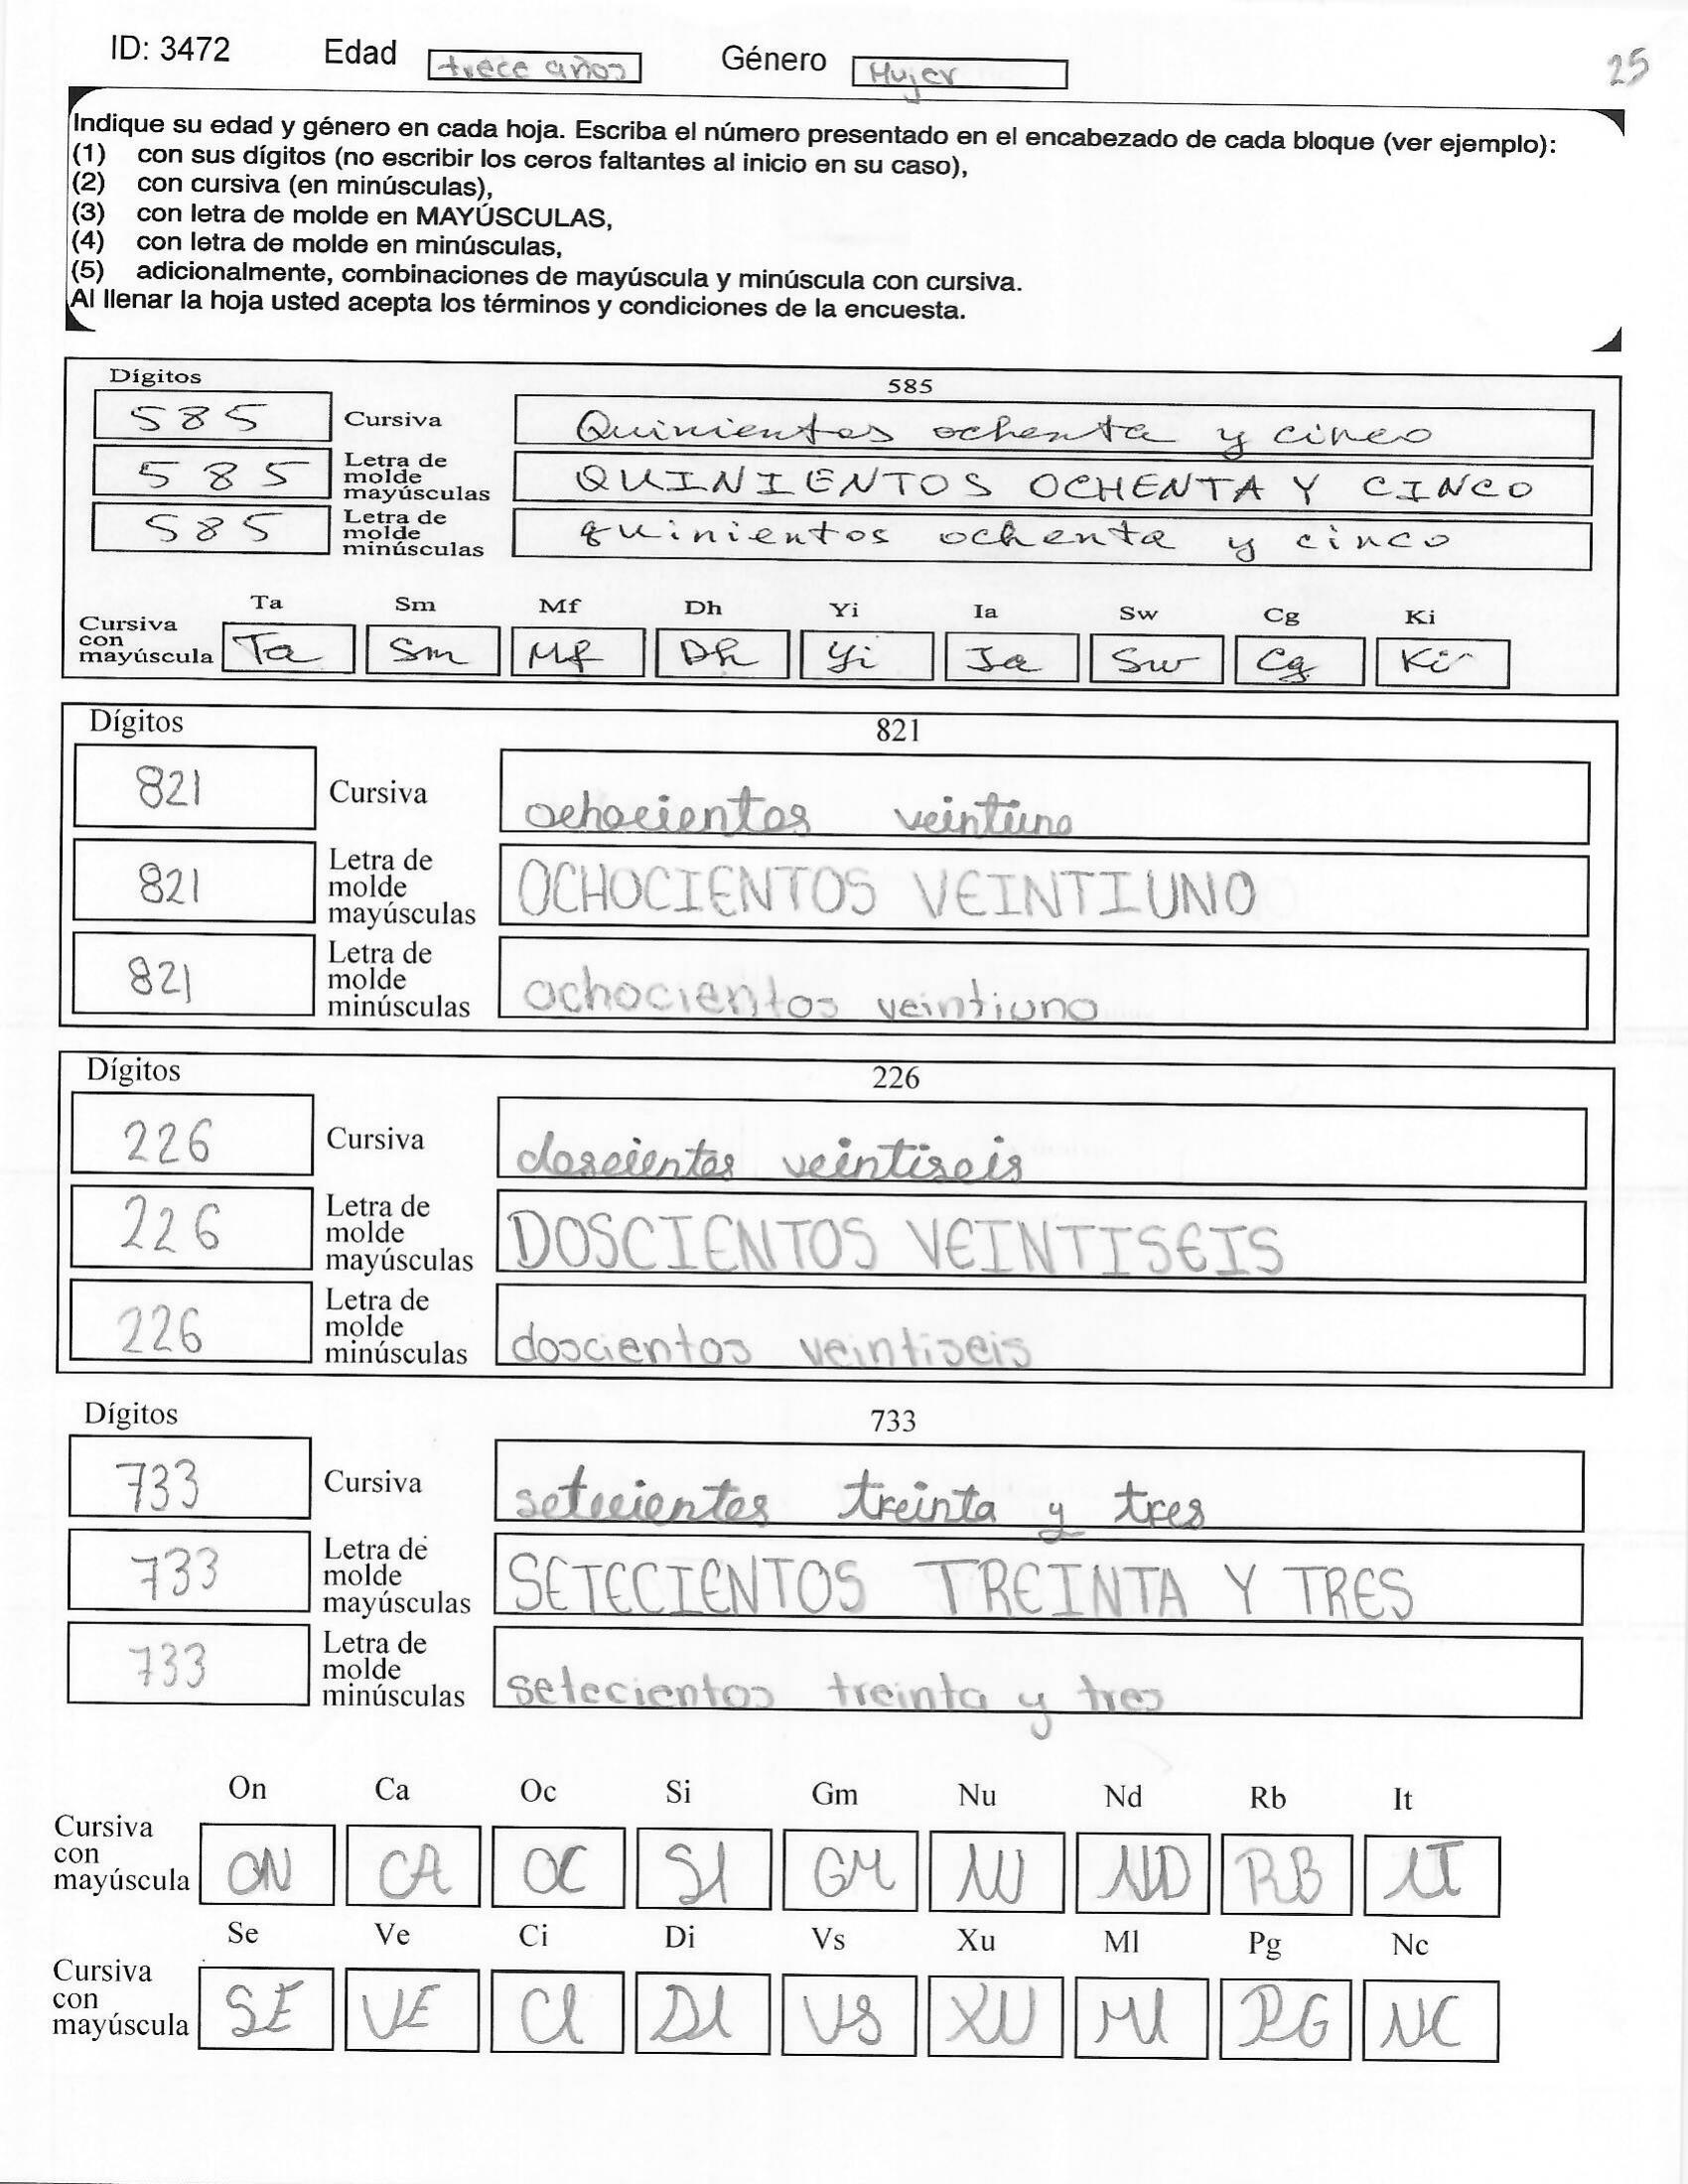 ID: 3472 Edad trece años Género Mujer 25
Indique su edad y género en cada hoja. Escriba el número presentado en el encabezado de cada bloque (ver ejemplo):
(1) con sus dígitos (no escribir los ceros faltantes al inicio en su caso),
(2) con cursiva (en minúsculas),
(3) con letra de molde en MAYÚSCULAS,
(4) con letra de molde en minúsculas,
(5) adicionalmente, combinaciones de mayúscula y minúscula con cursiva.
Al llenar la hoja usted acepta los términos y condiciones de la encuesta.
Dígitos 585
585 Cursiva Quinientos ochenta y cinco
585 Letra de molde mayúsculas QUINIENTOS OCHENTA Y CINCO
585 Letra de molde minúsculas quinientos ochenta y cinco
Ta Sm Mf Dh Yi Ia Sw Cg Ki
Cursiva con mayúscula Ta Sm Mf Dh Yi Ia Sw Cg Ki
Dígitos 821
821 Cursiva ochocientos veintiuno
821 Letra de molde mayúsculas OCHOCIENTOS VEINTIUNO
821 Letra de molde minúsculas ochocientos veintiuno
Dígitos 226
226 Cursiva doscientos veintiseis
226 Letra de molde mayúsculas DOSCIENTOS VEINTISEIS
226 Letra de molde minúsculas doscientos veintiseis
Dígitos 733
733 Cursiva setecientos treinta y tres
733 Letra de molde mayúsculas SETECIENTOS TREINTA Y TRES
733 Letra de molde minúsculas setecientos treinta y tres
On Ca Oc Si Gm Nu Nd Rb It
Cursiva con mayúscula ON CA OC SI GM NU ND RB IT
Se Ve Ci Di Vs Xu Ml Pg Nc
Cursiva con mayúscula SE VE CI DI VS XU Ml PG NC